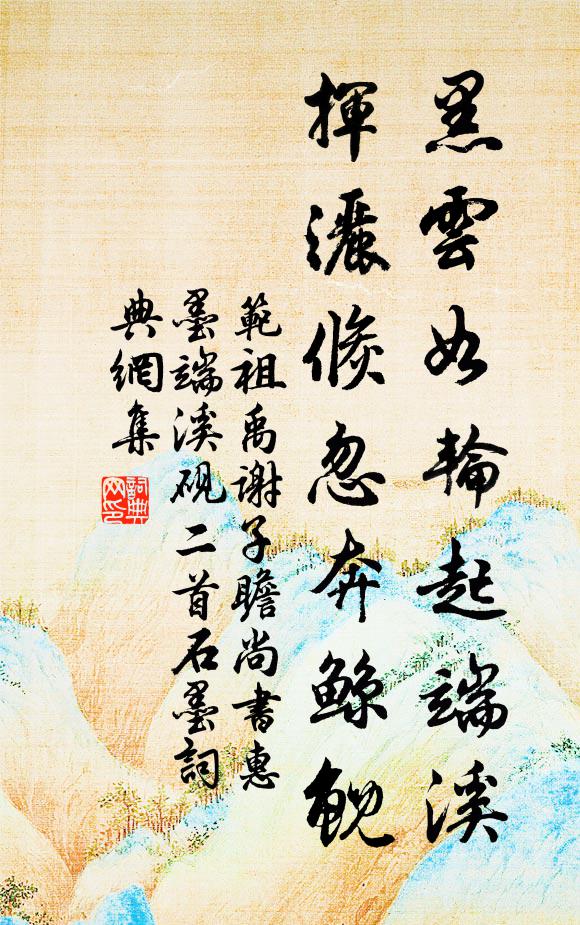 黑雲如輪起端溪
揮灑倏忽奔鯨鯢
範祖禹謝子瞻尚書惠
墨端溪硯二首石墨詞
典網集
詞典
网印